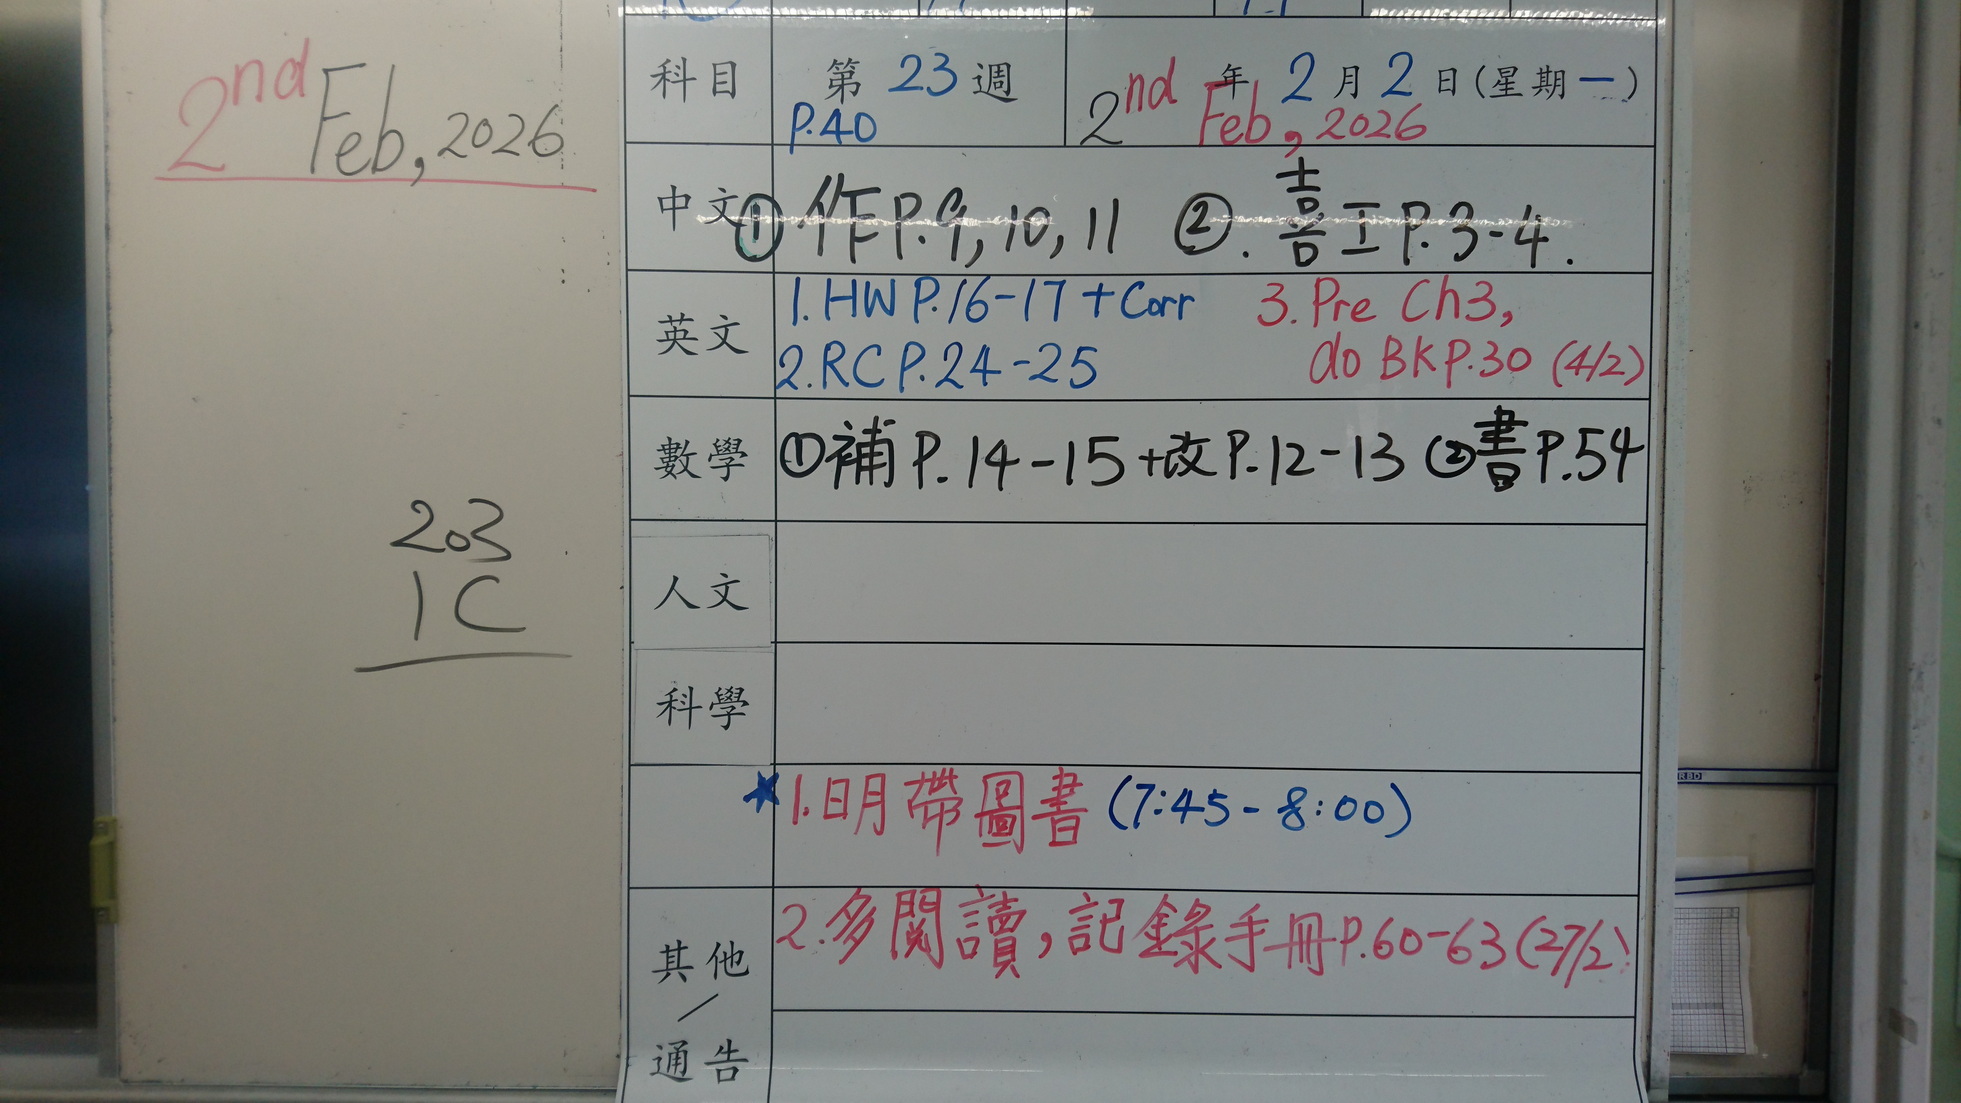 2nd Feb, 2026
203
1C
科目 第 23 週 年 2 月 2 日 (星期一)
P.40 2nd Feb, 2026
中文 ① 作P.9, 10, 11 ②. 喜工P.3-4.
英文 1. HW P.16-17 + Corr 3. Pre Ch3,
2. RC P.24-25 do BK P.30 (4/2)
數學 ①補 P.14-15 +改 P.12-13 ②書 P.54
人文
科學
★ 1. 日月帶圖書 (7:45-8:00)
其他 2. 多閱讀,記錄手冊P.60-63 (27/2)
/
通告
RBD